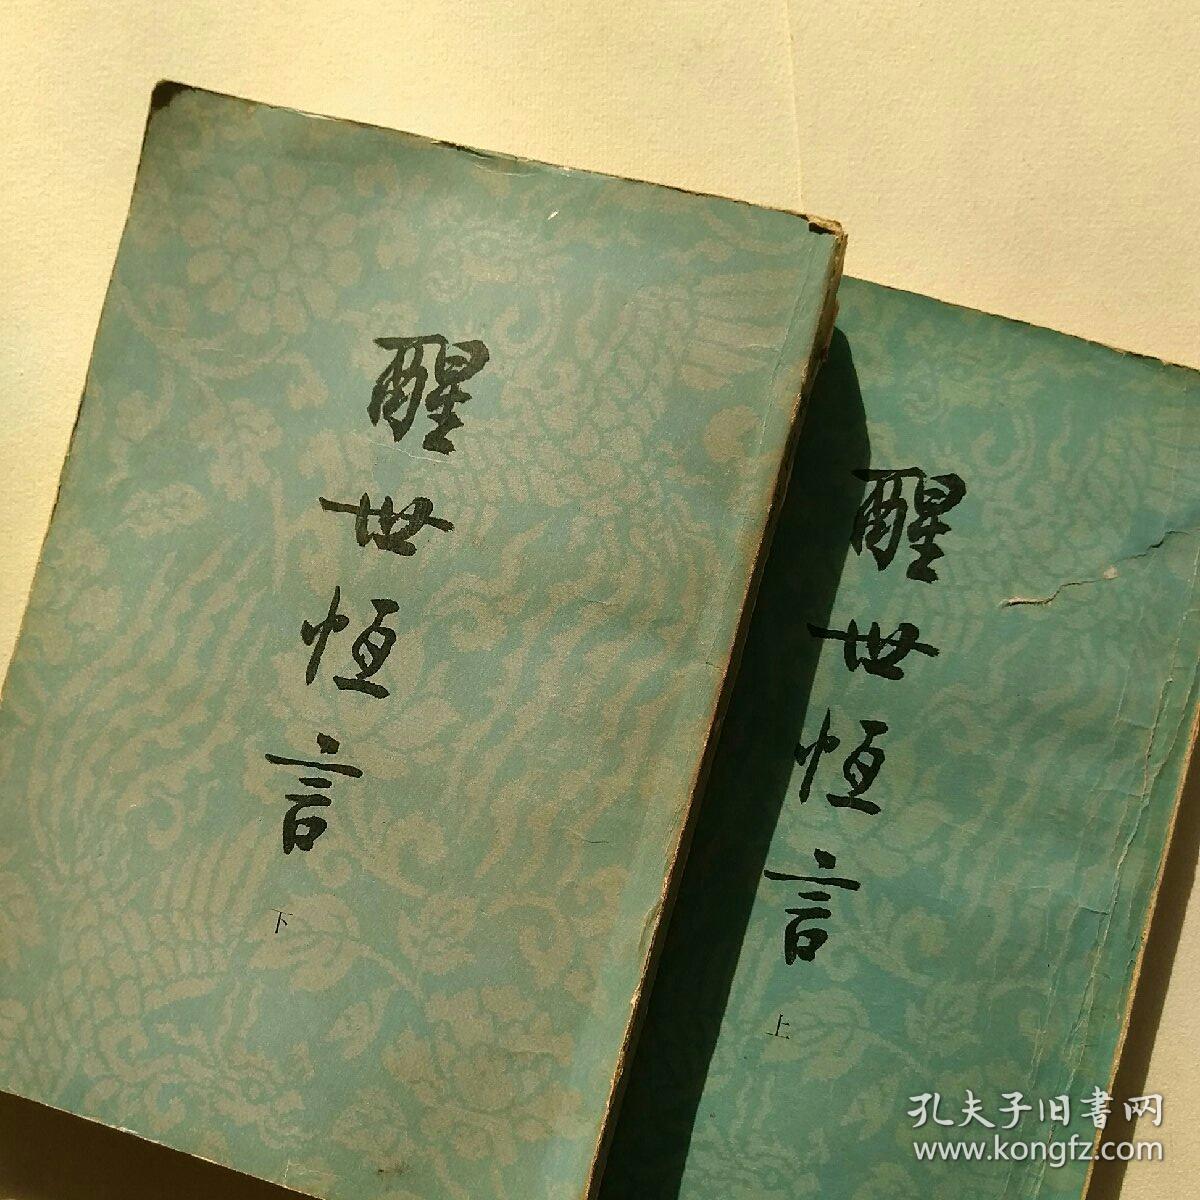 醒世恆言
下
醒世恆言
上
孔夫子旧書网
www.kongfz.com